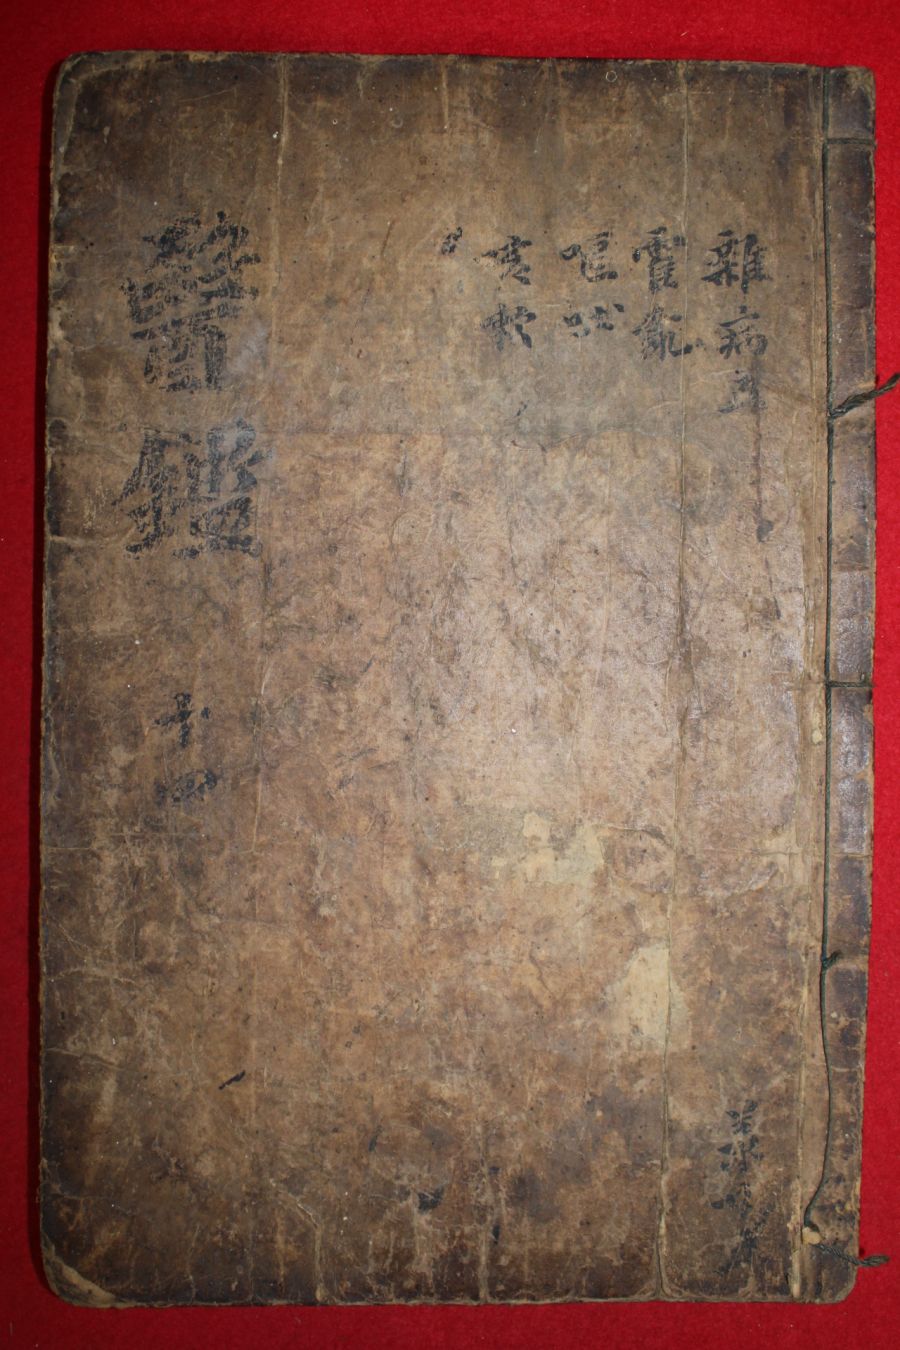 雜病五
霍亂
嘔吐
咳嗽
醫鑑 十四